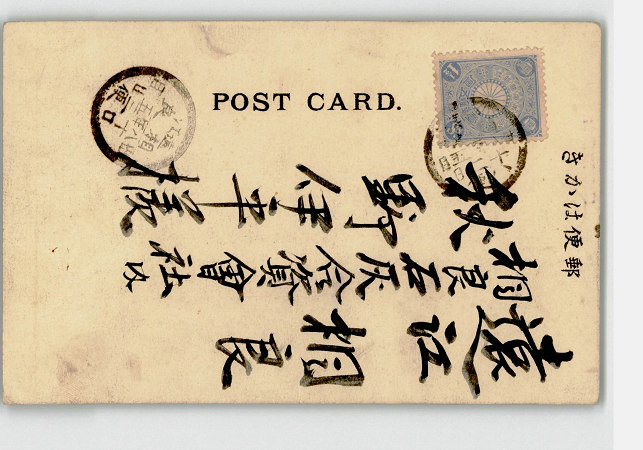 POST CARD.
郵便はかき
遠江相良
相良石灰合資會社内
秋野伊平様